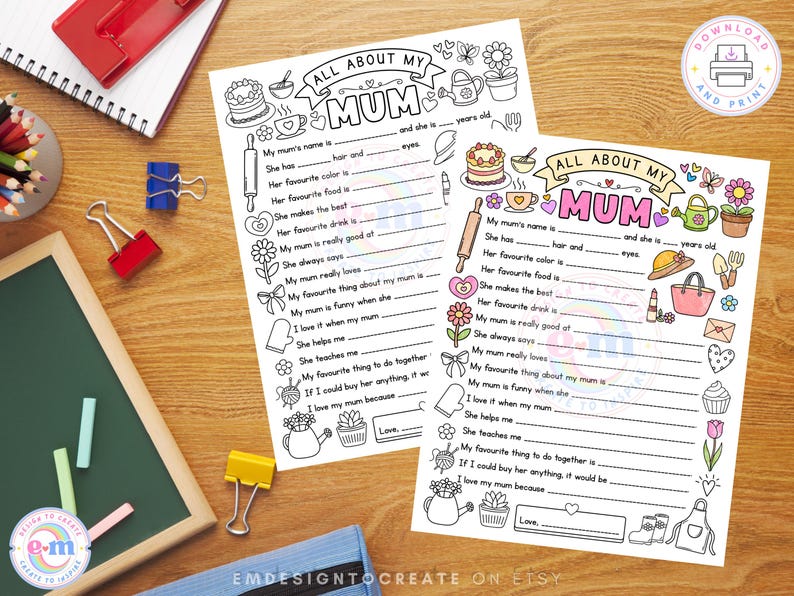 DOWNLOAD
AND PRINT
ALL ABOUT MY
MUM
My mum's name is ____________ and she is ____ years old.
She has ______ hair and ______ eyes.
Her favourite color is
Her favourite food is
She makes the best
Her favourite drink is
My mum is really good at
She always says
My mum really loves
My favourite thing about my mum is
My mum is funny when she
I love it when my mum
She helps me
She teaches me
My favourite thing to do together
If I could buy her anything, it wo
I love my mum because
Love,
ALL ABOUT MY
MUM
My mum's name is ____________ and she is ____ years old.
She has ______ hair and ______ eyes.
Her favourite color is
Her favourite food is
She makes the best
Her favourite drink is
My mum is really good at
She always says
My mum really loves
My favourite thing about my mum is
My mum is funny when she
I love it when my mum
She helps me
She teaches me
My favourite thing to do together is
If I could buy her anything, it would be
I love my mum because
Love,
DESIGN TO CREATE
e m
CREATE TO INSPIRE
DESIGN TO CREATE
e m
CREATE TO INSPIRE
DESIGN TO CREATE
e m
CREATE TO INSPIRE
EMDESIGNTOCREATE ON ETSY